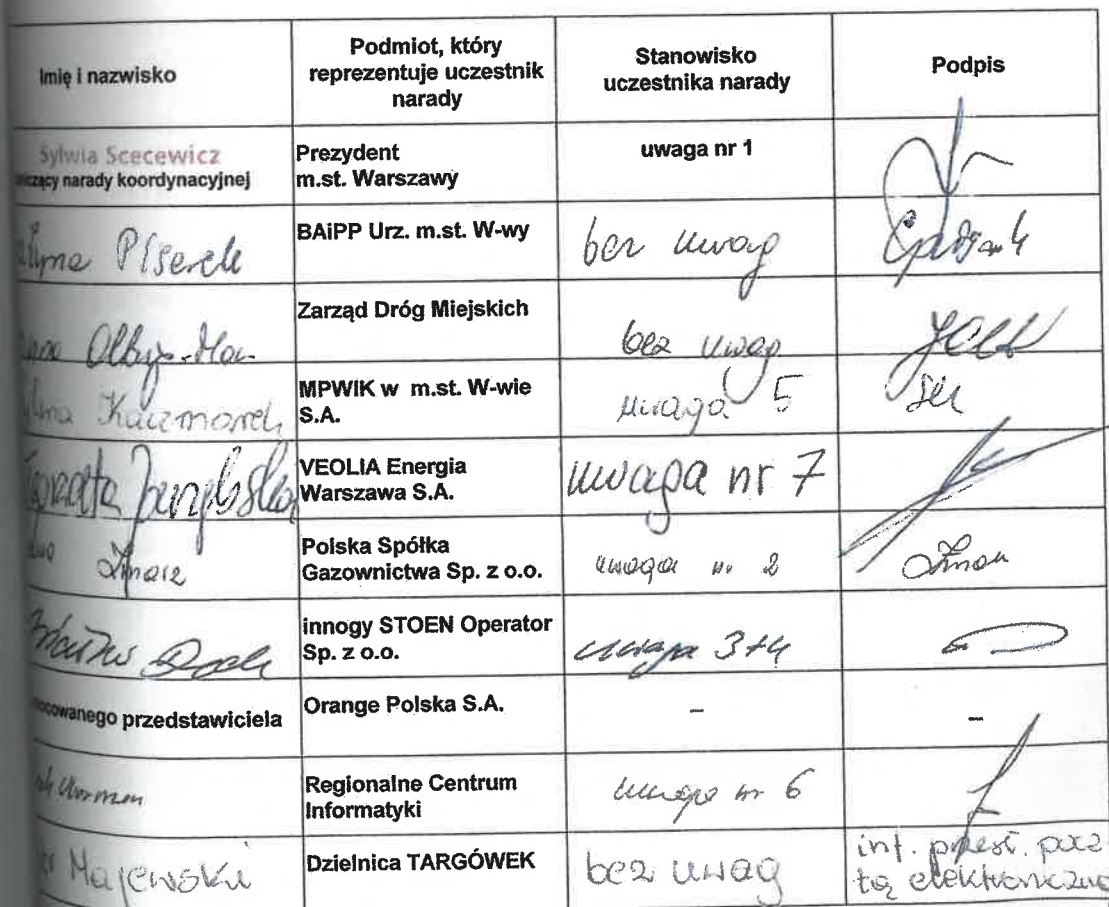 Imię i nazwisko
Podmiot, który
reprezentuje uczestnik
narady
Stanowisko
uczestnika narady
Podpis
Sylwia Scecewicz
narady koordynacyjnej
Prezydent
m.st. Warszawy
uwaga nr 1
BAiPP Urz. m.st. W-wy
bez uwag
Zarząd Dróg Miejskich
bez uwag
Kaczmarek
MPWIK w m.st. W-wie
S.A.
uwaga 5
VEOLIA Energia
Warszawa S.A.
uwaga nr 7
Polska Spółka
Gazownictwa Sp. z o.o.
uwaga nr 2
innogy STOEN Operator
Sp. z o.o.
uwaga 3+4
przedstawiciela
Orange Polska S.A.
–
–
Regionalne Centrum
Informatyki
uwaga nr 6
Majewski
Dzielnica TARGÓWEK
bez uwag
inf. przesł. pocz
tą elektroniczną